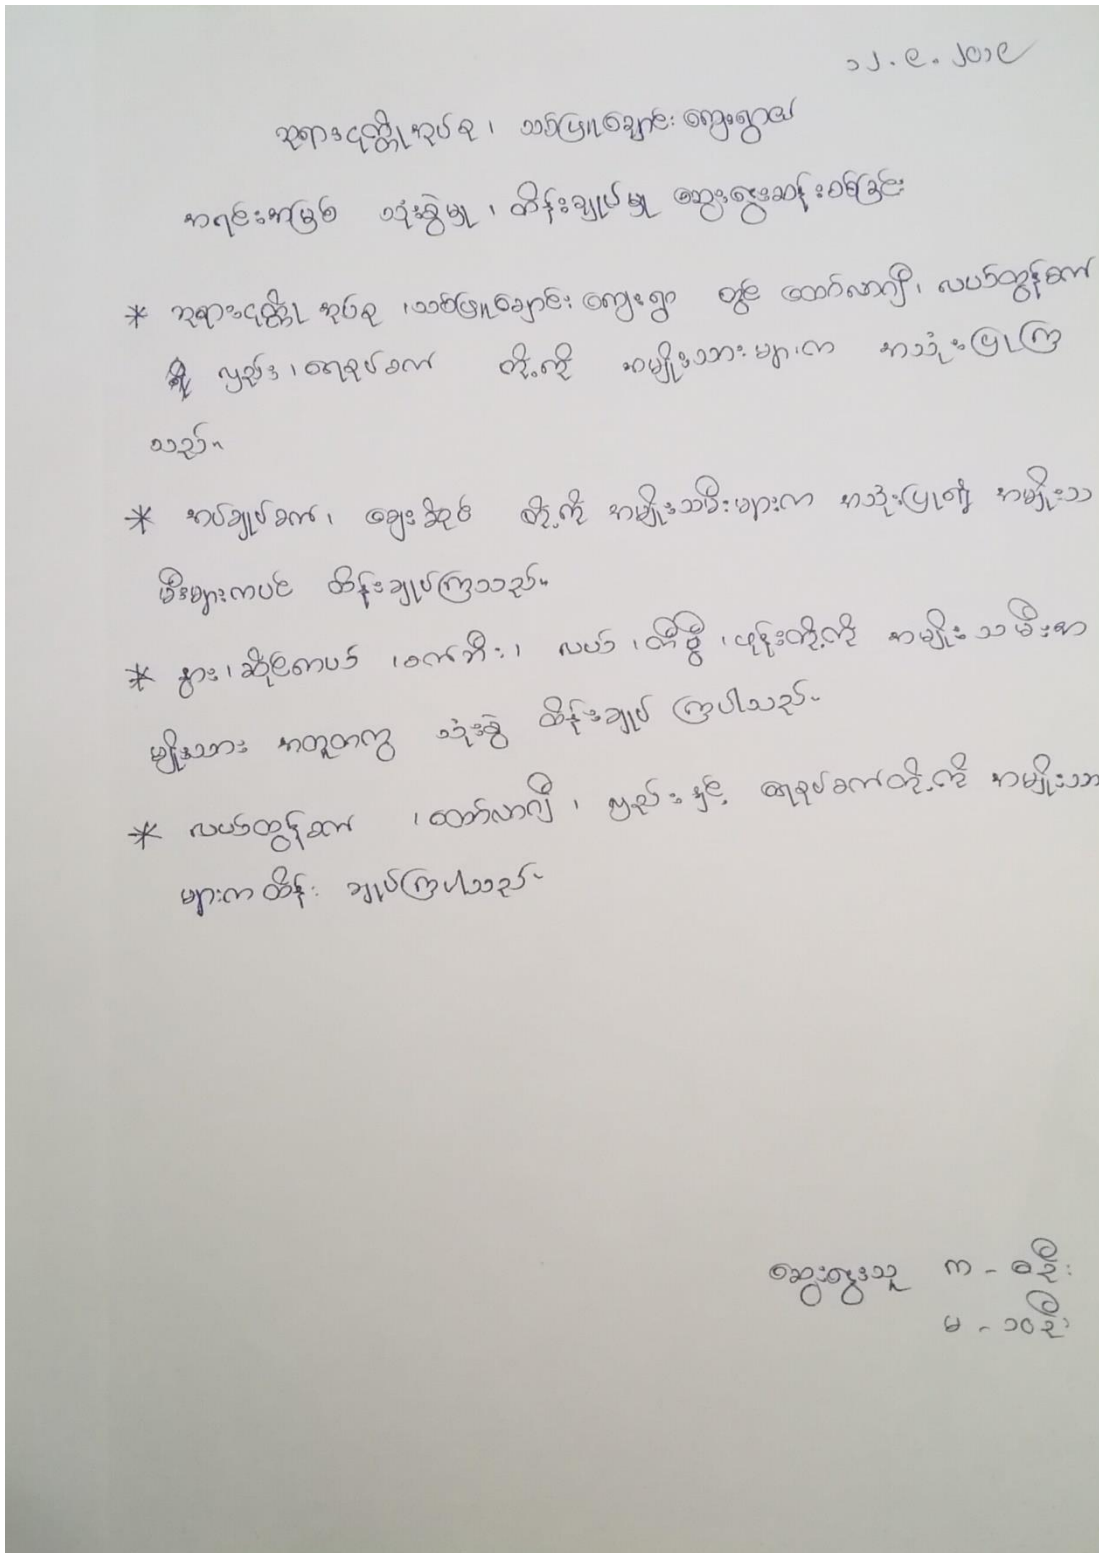 ၁၂.၉.၂၀၁၉
ဘုရားငုတ္တိုအုပ်စု၊ သစ်ဖြူချောင်းကျေးရွာ၏
အရင်းအမြစ် သုံးစွဲမှု၊ ထိန်းချုပ်မှု ဆွေးနွေးဆန်းစစ်ခြင်း
* ဘုရားငုတ္တို အုပ်စု ၊သစ်ဖြူချောင်းကျေးရွာ တွင် ထော်လာဂျီ၊ လယ်ထွန်စက်
လှည်း၊ရေစုပ်စက် တို့ကို အမျိုးသားများက အသုံးပြုကြ
သည်။
* အပ်ချုပ်စက်၊ ဈေးဆိုင် တို့ကို အမျိုးသမီးများက အသုံးပြု၍ အမျိုးသ
မီးများကပင် ထိန်းချုပ်ကြသည်။
* နွား၊ဆိုင်ကယ် ၊စက်ဘီး၊ လယ် ၊တီဗွီ ၊ဖုန်းတို့ကို အမျိုးသမီးအ
မျိုးသား အတူတကွ သုံးစွဲ ထိန်းချုပ် ကြပါသည်။
* လယ်ထွန်စက် ၊ထော်လာဂျီ ၊ လှည်းနှင့် ရေစုပ်စက်တို့ကို အမျိုးသာ
များက ထိန်း ချုပ်ကြပါသည်။
ဆွေးနွေးသူ က - ၈ဦး
မ - ၁၀ဦး